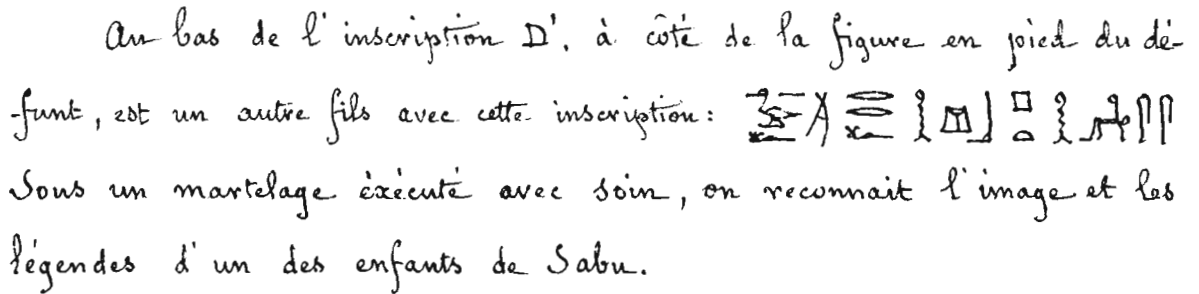 Au bas de l'inscription D', à côté de la figure en pied du dé-
-funt, est un autre fils avec cette inscription:
Sous un martelage èxécuté avec soin, on reconnait l'image et les
légendes d'un des enfants de Sabu.